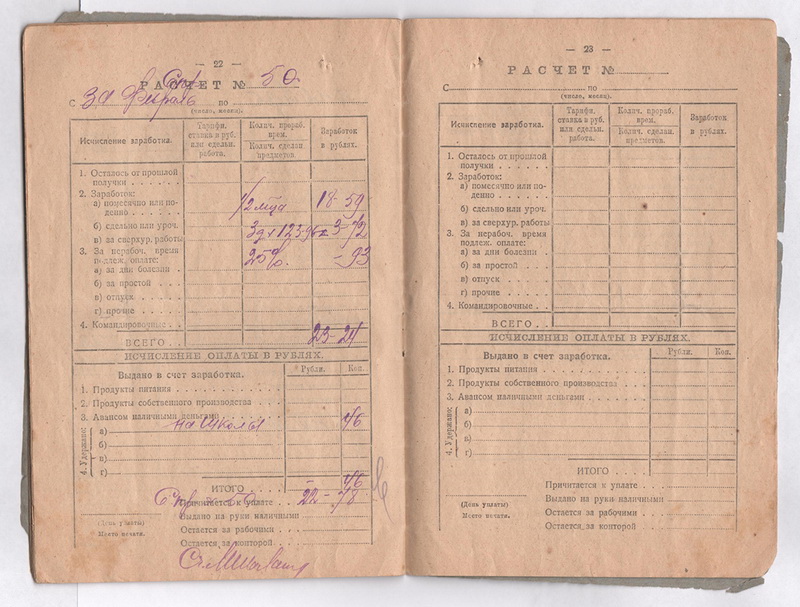 — 22 —
РАСЧЕТ № 50.
С За февраль по
(число, месяц).
Исчисление заработка.
Тарифн. ставка в руб. или сдельн. работа.
Колич. прораб. врем.
Колич. сделан. предметов.
Заработок в рублях.
1. Осталось от прошлой
получки
2. Заработок:
а) помесячно или по-
денно 1/2 м-ца 18-59
б) сдельно или уроч. 3-72
в) за сверхур. работы
3. За нерабоч. время
подлеж. оплате: 25% -93
а) за дни болезни
б) за простой
в) отпуск
г) прочие
4. Командировочные
ВСЕГО 23-24
ИСЧИСЛЕНИЕ ОПЛАТЫ В РУБЛЯХ.
Выдано в счет заработка.
Рубли.
Коп.
1. Продукты питания
2. Продукты собственного производства
3. Авансом наличными деньгами
4. Удержано:
а) на школы 46
б)
п)
г)
ИТОГО 46
Причитается к уплате 22-78
Выдано на руки наличными
(День уплаты)
Остается за рабочими
Место печати.
Остается за конторой
— 23 —
РАСЧЕТ №
С по
(число, месяц.)
Исчисление заработка.
Тарифн. ставка в руб. или сдельн. работа.
Колич. прораб. врем.
Колич. сделан. предметов.
Заработок в рублях.
1. Осталось от прошлой
получки
2. Заработок:
а) помесячно или по-
денно
б) сдельно или уроч.
в) за сверхур. работы
3. За нерабоч. время
подлеж. оплате:
а) за дни болезни
б) за простой
в) отпуск
г) прочие
4. Командировочные
ВСЕГО
ИСЧИСЛЕНИЕ ОПЛАТЫ В РУБЛЯХ.
Выдано в счет заработка.
Рубли.
Коп.
1. Продукты питания
2. Продукты собственного производства
3. Авансом наличными деньгами
4. Удержано:
а)
б)
в)
г)
ИТОГО
Причитается к уплате
(День уплаты)
Выдано на руки наличными
Место печати.
Остается за рабочими
Остается за конторой